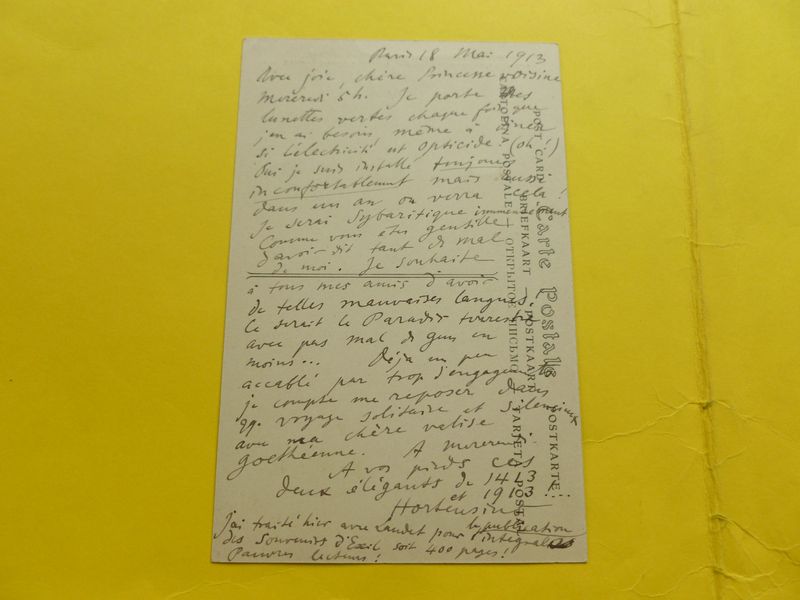 Paris 18 Mai 1913
Avec joie, chère Princesse voisine
mercredi 5 h. Je porte mes
lunettes vertes chaque fois que
j'en ai besoin, même à dîner
si l'électricité est opticide (oh!)
Oui je suis installé toujours
inconfortablement mais aussi
dans un an on verra cela!
Je serai Sybaritique immensément
Comme vous êtes gentille
d'avoir dit tant de mal
de moi. Je souhaite
à tous mes amis d'avoir
de telles mauvaises langues!
Ce serait le Paradis terrestre
avec pas mal de gens en
moins... Déjà un peu
accablé par trop d'engagements
je compte me reposer dans
qq. voyage solitaire et silencieux
avec ma chère valise
goethéenne. A mercredi.
A vos pieds ces
deux élégants de 1413
et 1913!...
J'ai traité hier avec Laudet pour la publication
des Souvenirs d'Exil, soit 400 pages! intégrale
Pauvres lecteurs!
Carte Postale
POST CARD – BRIEFKAART – POSTKAART – POSTKARTE
POSTALE – ОТКРЫТОЕ ПИСЬМО – TARJETA POSTAL